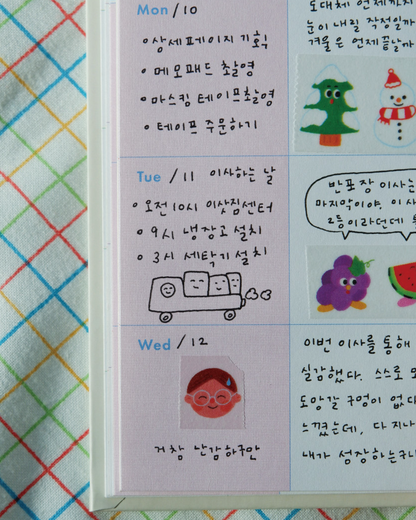 Mon / 10
• 상세페이지 기획
• 메모패드 촬영
• 마스킹 테이프촬영
• 테이프 주문하기
도대체 언제까지
눈이 내릴 작정일까
겨울은 언제 끝날까
Tue / 11 이사하는 날
• 오전 10시 이삿짐센터
• 9시 냉장고 설치
• 3시 세탁기 설치
반포장 이사는
마지막이야. 이사
2등이라던데
Wed / 12
거참 난감하구만
이번 이사를 통해
실감했다. 스스로
도망갈 구멍이 없다
느꼈는데, 다 지나
내가 성장하는구나